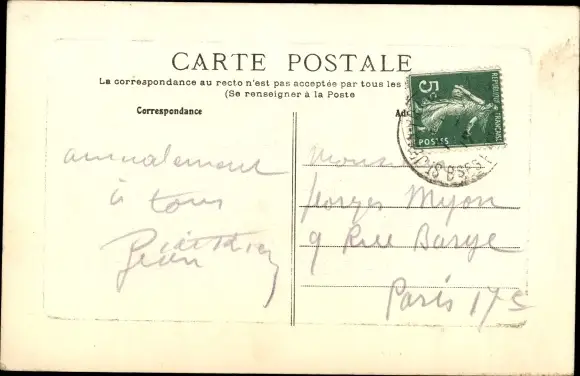 CARTE POSTALE
La correspondance au recto n'est pas acceptée par tous les
(Se renseigner à la Poste
Correspondance
Ad
5c
REPUBLIQUE FRANÇAISE
POSTES
amicalement
à tous
Jean
Monsieur
Georges Myon
9 Rue Barye
Paris 17e